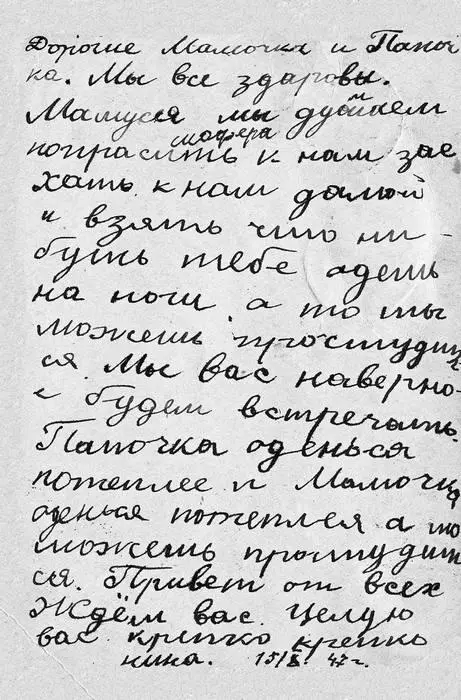 Дорогие Мамочка и Папоч
ка. Мы все здаровы.
Мамуся мы думаем
шофера
попрасить к нам зае
хать к нам дамой
и взять что ни-
будь тебе адеть
на ноги, а то ты
можешь простудить
ся. Мы вас наверно-
е будем встречать.
Папочка оденься
потеплее и Мамочка
оденься потеплея а то
можешь простудит
ся. Привет от всех
Ждём вас. Целую
вас крепко крепко
нина. 15/X. 47 г.